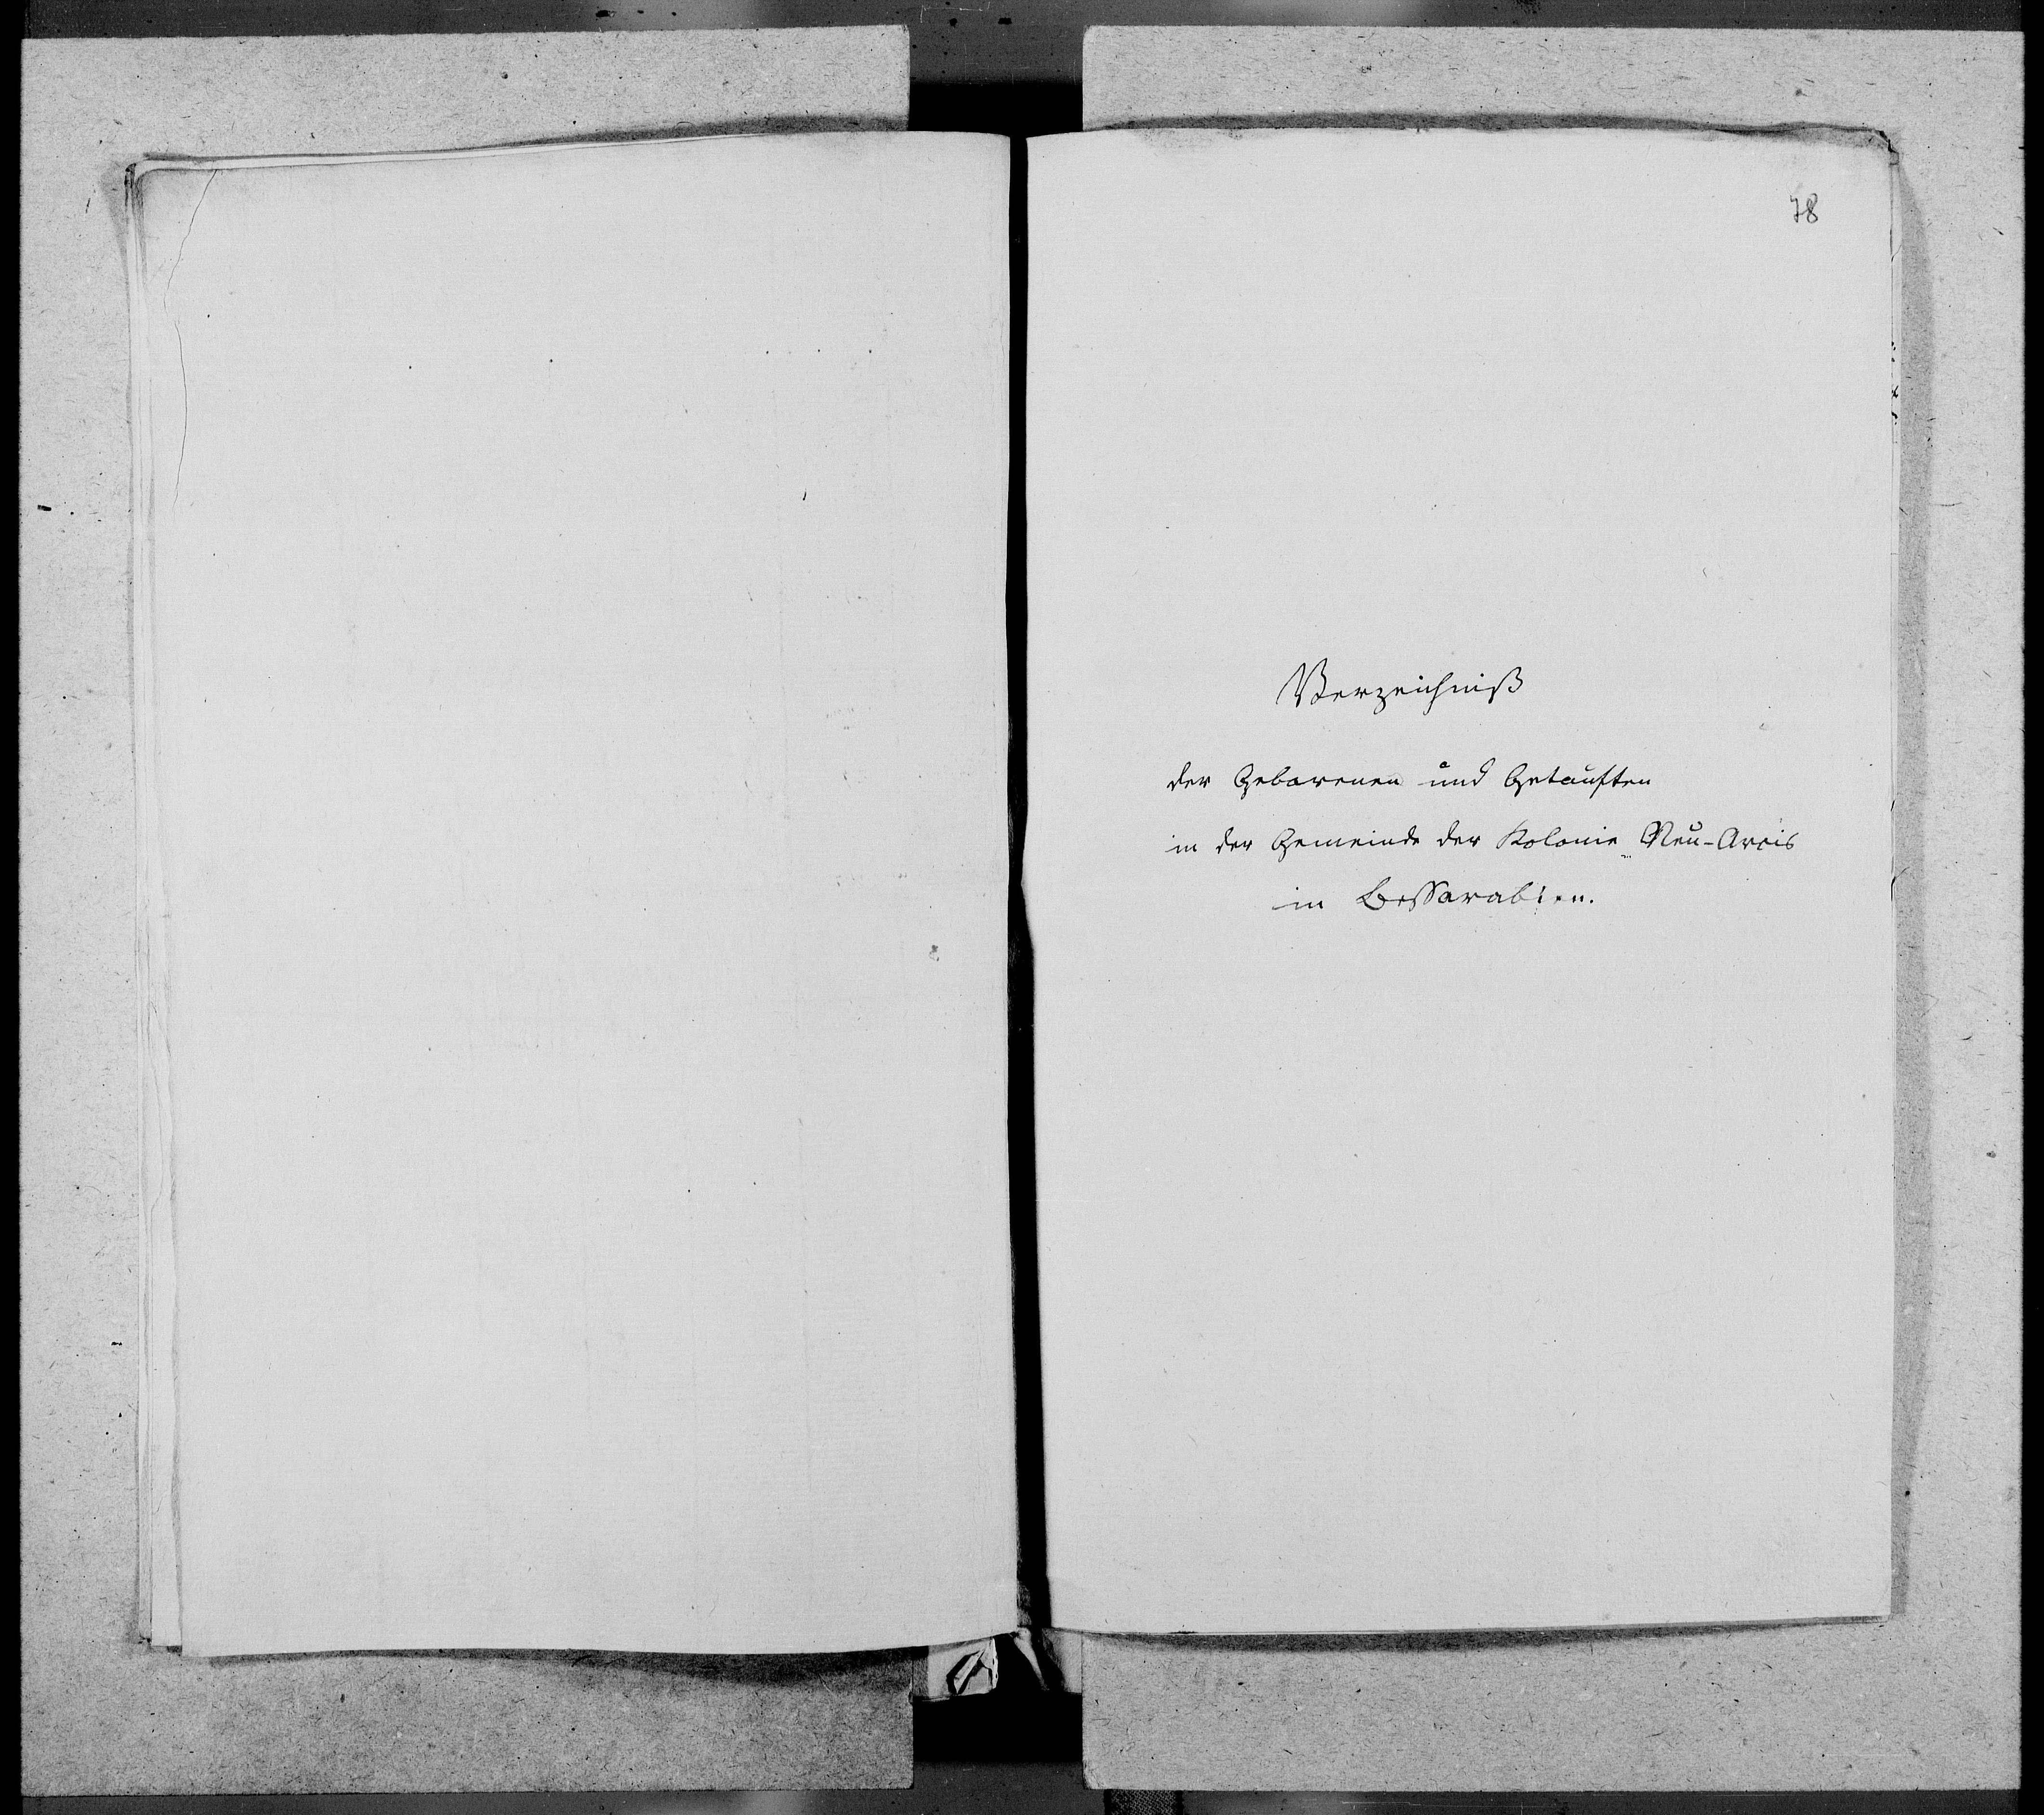 78
Verzeichniß
der Geborenen und Getauften
in der Gemeinde der Kolonie Neu-Arcis
in Bessarabien.